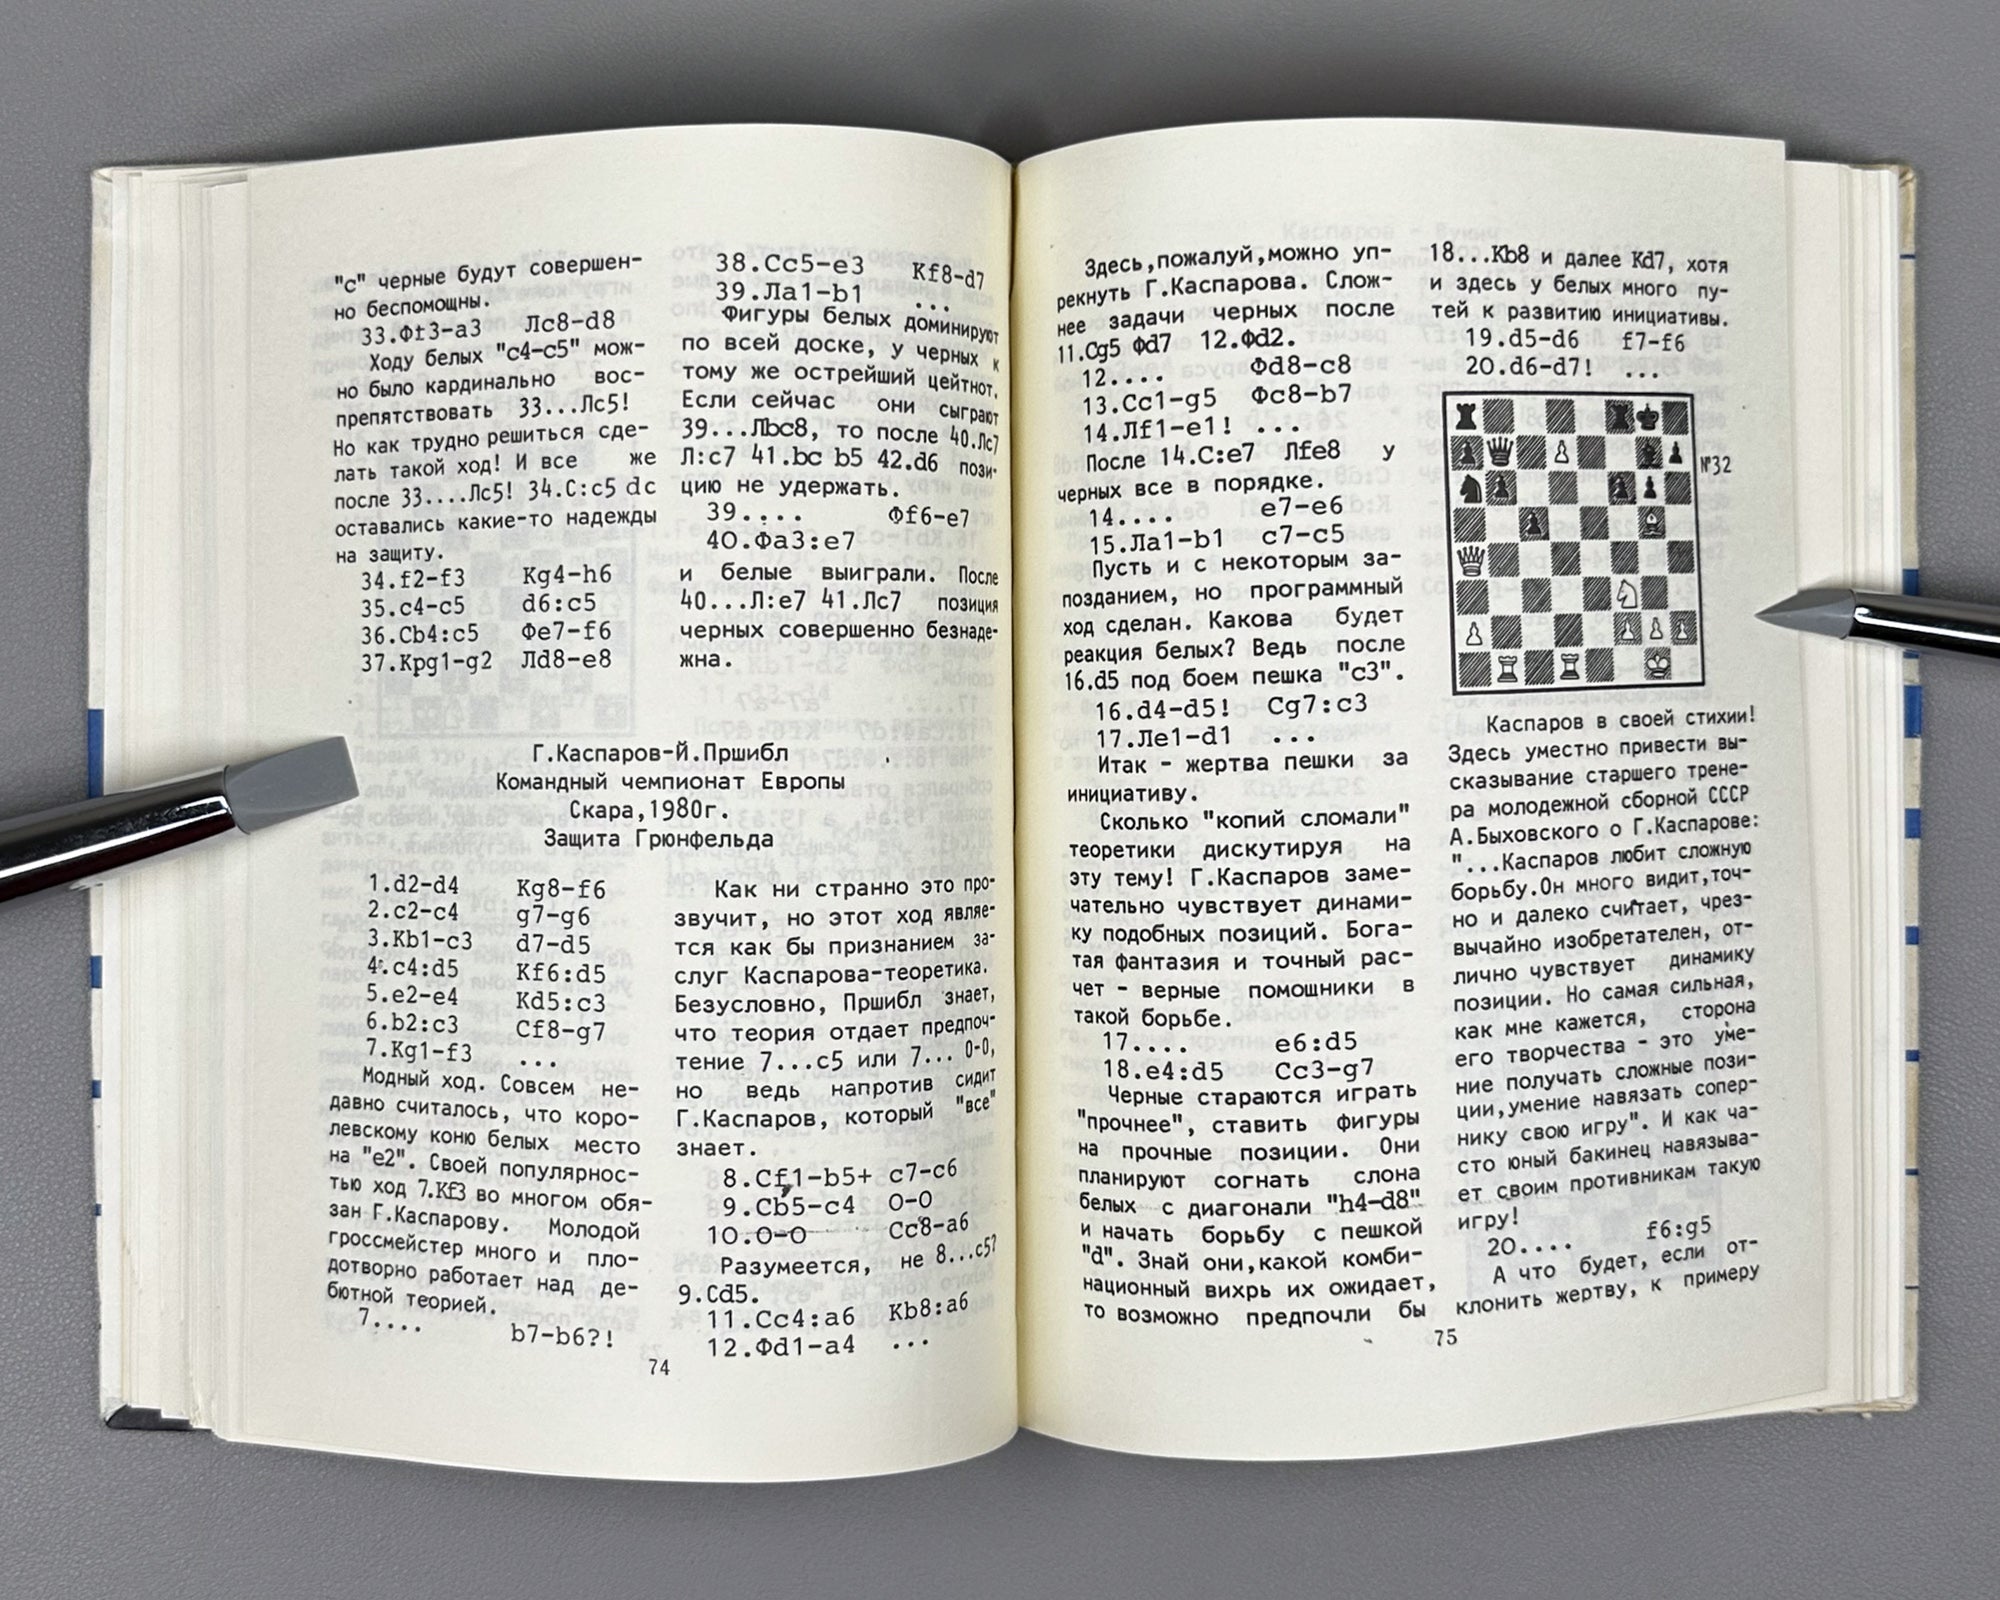 "с" черные будут совершен-
но беспомощны.
33.Фf3-a3 Лc8-d8
Ходу белых "c4-c5" мож-
но было кардинально вос-
препятствовать 33...Лc5!
Но как трудно решиться сде-
лать такой ход! И все же
после 33....Лc5! 34.C:c5 dc
оставались какие-то надежды
на защиту.
34.f2-f3 Kg4-h6
35.c4-c5 d6:c5
36.Cb4:c5 Фe7-f6
37.Kpg1-g2 Лd8-e8
38.Cc5-e3 Kf8-d7
39.Лa1-b1 ...
Фигуры белых доминируют
по всей доске, у черных к
тому же острейший цейтнот.
Если сейчас они сыграют
39...Лbc8, то после 40.Лc7
Л:c7 41.bc b5 42.d6 пози-
цию не удержать.
39.... Фf6-e7
40.Фa3:e7
и белые выиграли. После
40...Л:e7 41.Лc7 позиция
черных совершенно безнаде-
жна.
Г.Каспаров-Й.Пршибл
Командный чемпионат Европы
Скара,1980г.
Защита Грюнфельда
1.d2-d4 Kg8-f6
2.c2-c4 g7-g6
3.Kb1-c3 d7-d5
4.c4:d5 Kf6:d5
5.e2-e4 Kd5:c3
6.b2:c3 Cf8-g7
7.Kg1-f3 ...
Модный ход. Совсем не-
давно считалось, что коро-
левскому коню белых место
на "e2". Своей популярнос-
тью ход 7.Kf3 во многом обя-
зан Г.Каспарову. Молодой
гроссмейстер много и пло-
дотворно работает над де-
бютной теорией.
7.... b7-b6?!
Как ни странно это про-
звучит, но этот ход являе-
тся как бы признанием за-
слуг Каспарова-теоретика.
Безусловно, Пршибл знает,
что теория отдает предпоч-
тение 7...c5 или 7... 0-0,
но ведь напротив сидит
Г.Каспаров, который "все"
знает.
8.Cf1-b5+ c7-c6
9.Cb5-c4 0-0
10.0-0 Cc8-a6
Разумеется, не 8...c5?
9.Cd5.
11.Cc4:a6 Kb8:a6
12.Фd1-a4 ...
74
Здесь,пожалуй,можно уп-
рекнуть Г.Каспарова. Слож-
нее задачи черных после
11.Cg5 Фd7 12.Фd2.
12.... Фd8-c8
13.Cc1-g5 Фc8-b7
14.Лf1-e1! ...
После 14.C:e7 Лfe8 у
черных все в порядке.
14.... e7-e6
15.Лa1-b1 c7-c5
Пусть и с некоторым за-
позданием, но программный
ход сделан. Какова будет
реакция белых? Ведь после
16.d5 под боем пешка "c3".
16.d4-d5! Cg7:c3
17.Лe1-d1 ...
Итак - жертва пешки за
инициативу.
Сколько "копий сломали"
теоретики дискутируя на
эту тему! Г.Каспаров заме-
чательно чувствует динами-
ку подобных позиций. Бога-
тая фантазия и точный рас-
чет - верные помощники в
такой борьбе.
17.... e6:d5
18.e4:d5 Cc3-g7
Черные стараются играть
"прочнее", ставить фигуры
на прочные позиции. Они
планируют согнать слона
белых с диагонали "h4-d8"
и начать борьбу с пешкой
"d". Знай они,какой комби-
национный вихрь их ожидает,
то возможно предпочли бы
18...Kb8 и далее Kd7, хотя
и здесь у белых много пу-
тей к развитию инициативы.
19.d5-d6 f7-f6
20.d6-d7! ...
№32
Каспаров в своей стихии!
Здесь уместно привести вы-
сказывание старшего трене-
ра молодежной сборной СССР
А.Быховского о Г.Каспарове:
"...Каспаров любит сложную
борьбу.Он много видит,точ-
но и далеко считает, чрез-
вычайно изобретателен, от-
лично чувствует динамику
позиции. Но самая сильная,
как мне кажется, сторона
его творчества - это уме-
ние получать сложные пози-
ции,умение навязать сопер-
нику свою игру". И как ча-
сто юный бакинец навязыва-
ет своим противникам такую
игру!
20.... f6:g5
А что будет, если от-
клонить жертву, к примеру
75